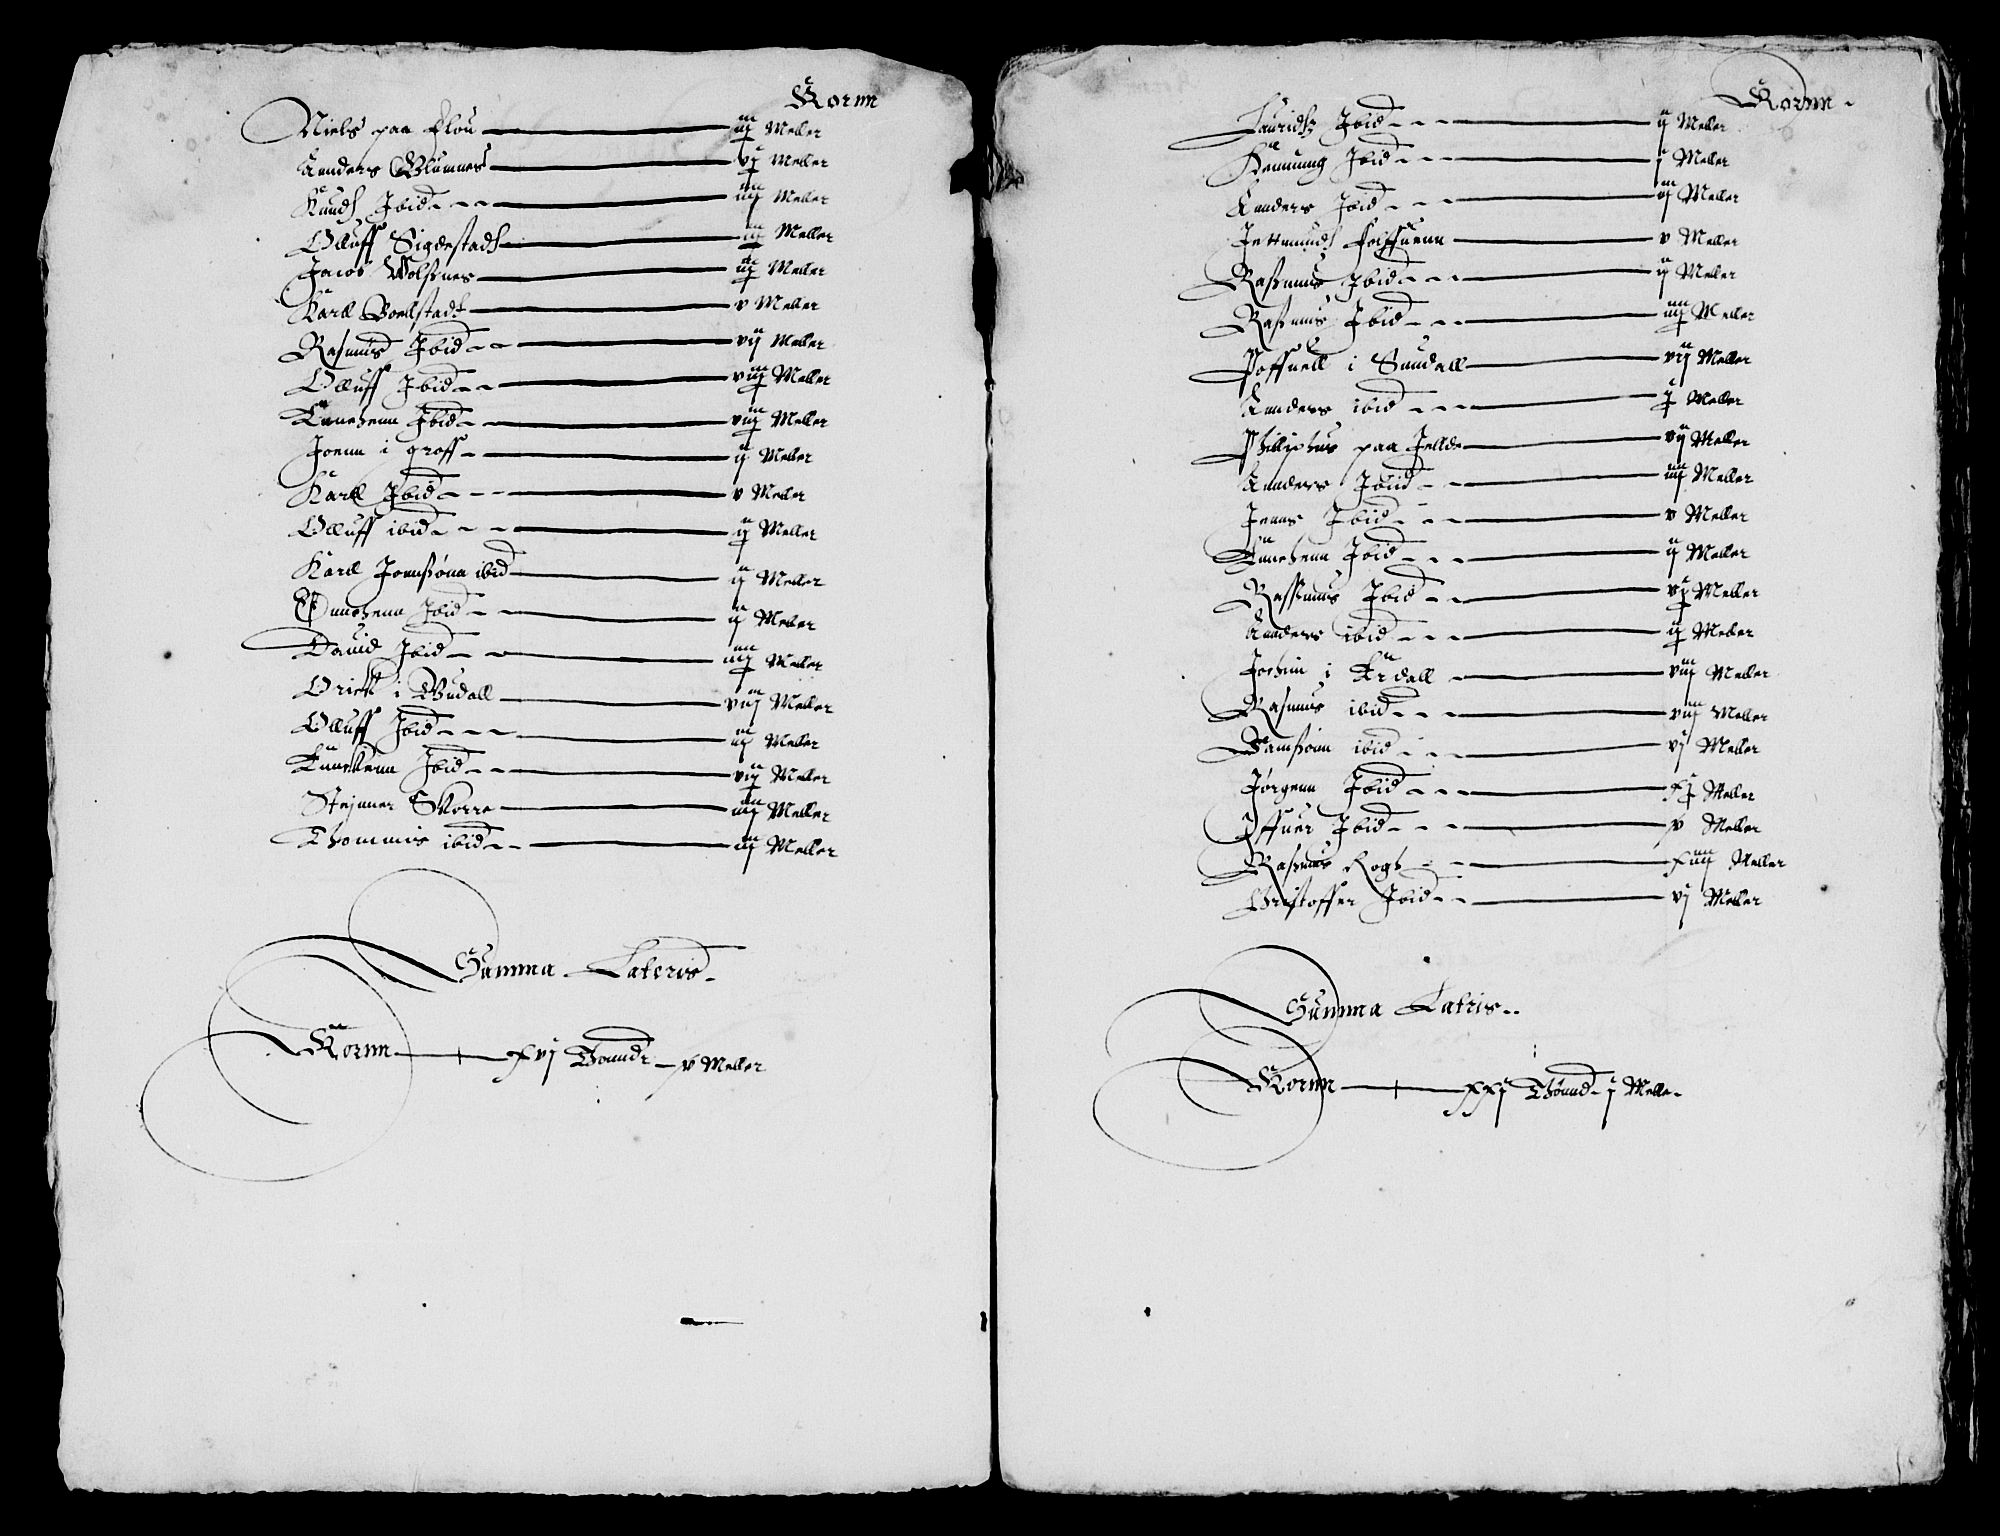 Kornn
Niels paa Flou — iiij Meller
Anders Glumnes — vj Meller
Knud Ibid — iiij Meller
Olluff Sigdestad — iij Meller
Jacob Wolssnes — iij Meller
Karll Voellstad — v Meller
Rasmus Ibid — vij Meller
Olluff Ibid — viij Meller
Ennchenn Ibid — viij Meller
Joenn i groff — ij Meller
Karll Ibid — v Meller
Olluff ibid — ij Meller
Karll Joenssønn ibid — ij Meller
Ennchenn Ibid — ij Meller
Dauid Ibid — iiij Meller
Erick i Budall — viij Meller
Olluff Ibid — iij Meller
Ennckenn Ibid — viij Meller
Stejner Skorre — iiij Meller
Thommis ibid — iij Meller
Summa Lateris
Kornn — xvj Thønnde v Meller
Kornn
Lauridtz Ibid — ij Meller
Hennung Ibid — j Meller
Anders Ibid — iij Meller
Jettmund — v Meller
Rassmus Ibid — ij Meller
Rassmus Ibid — iiij Meller
Poffuell i Sundall — vij Meller
Anders ibid — j Meller
Phillipus paa Jellde — vij Meller
Anders Ibiid — iiij Meller
Jenns Ibid — v Meller
Ennchenn Ibid — ij Meller
Rassmus Ibid — vj Meller
Anders ibid — ij Meller
Jochim i Ardall — viij Meller
Rasmus ibid — viij Meller
Samssonn ibid — vj Meller
Jørgenn Ibid — xj Meller
Iffuer Ibid — v Meller
Rassmus — xiiij Meller
Christoffer Ibid — vj Meller
Summa Latris
Kornn — xxj Thønnd j Melle